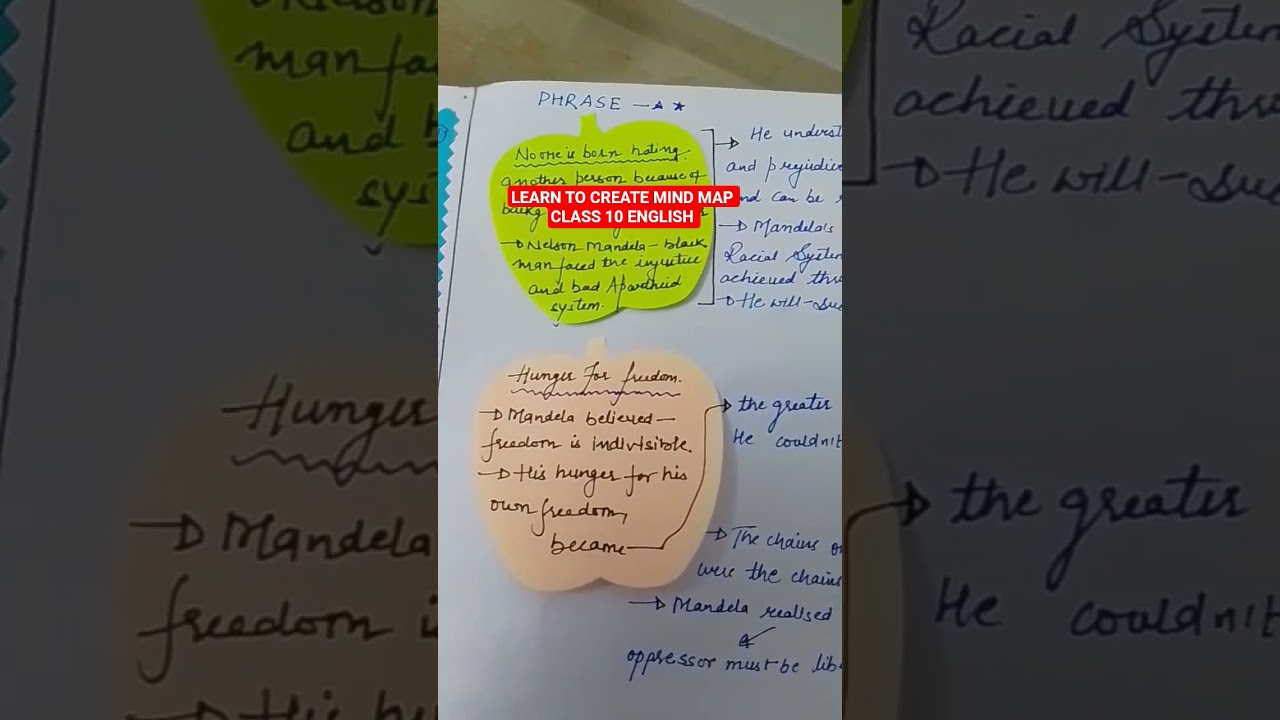 PHRASE
No one is born hating
another person because of
LEARN TO CREATE MIND MAP
CLASS 10 ENGLISH
being
→ Nelson Mandela - black
man faced the injustice
and bad Apartheid
system.
→ He underst
and prejudice
and can be
→ Mandela's
Racial System
achieved thro
→ He will - suc
Hunger For freedom.
→ Mandela believed —
freedom is indivisible.
→ His hunger for his
own freedom,
became
→ the greater
He couldn't
→ The chains o
were the chains
→ Mandela realised
oppressor must be lib